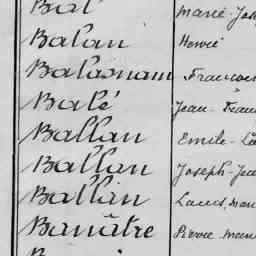 Bal Marie-Jos
Balan Hervé
Balasnam Francois
Balé Jean-Fran
Ballan Emile-
Ballan Joseph-Jea
Ballin Louis, Mar
Banâtre Pierre Mar